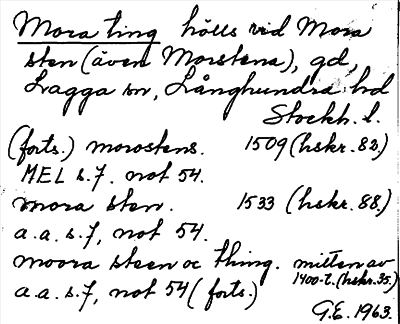 Mora ting hölls vid Mora
sten (även Morstena), gd,
Lagga sn, Långhundra hd
Stockh. l.
(forts.) morostens. 1509 (hskr. 82.)
MEL s. 7. not 54.
mora sten. 1533 (hskr. 88.)
a. a. s. 7, not 54.
moora steen oc thing. mitten av
1400-t. (hskr. 35.)
a. a. s. 7, not 54 (forts.)
G.E. 1963.